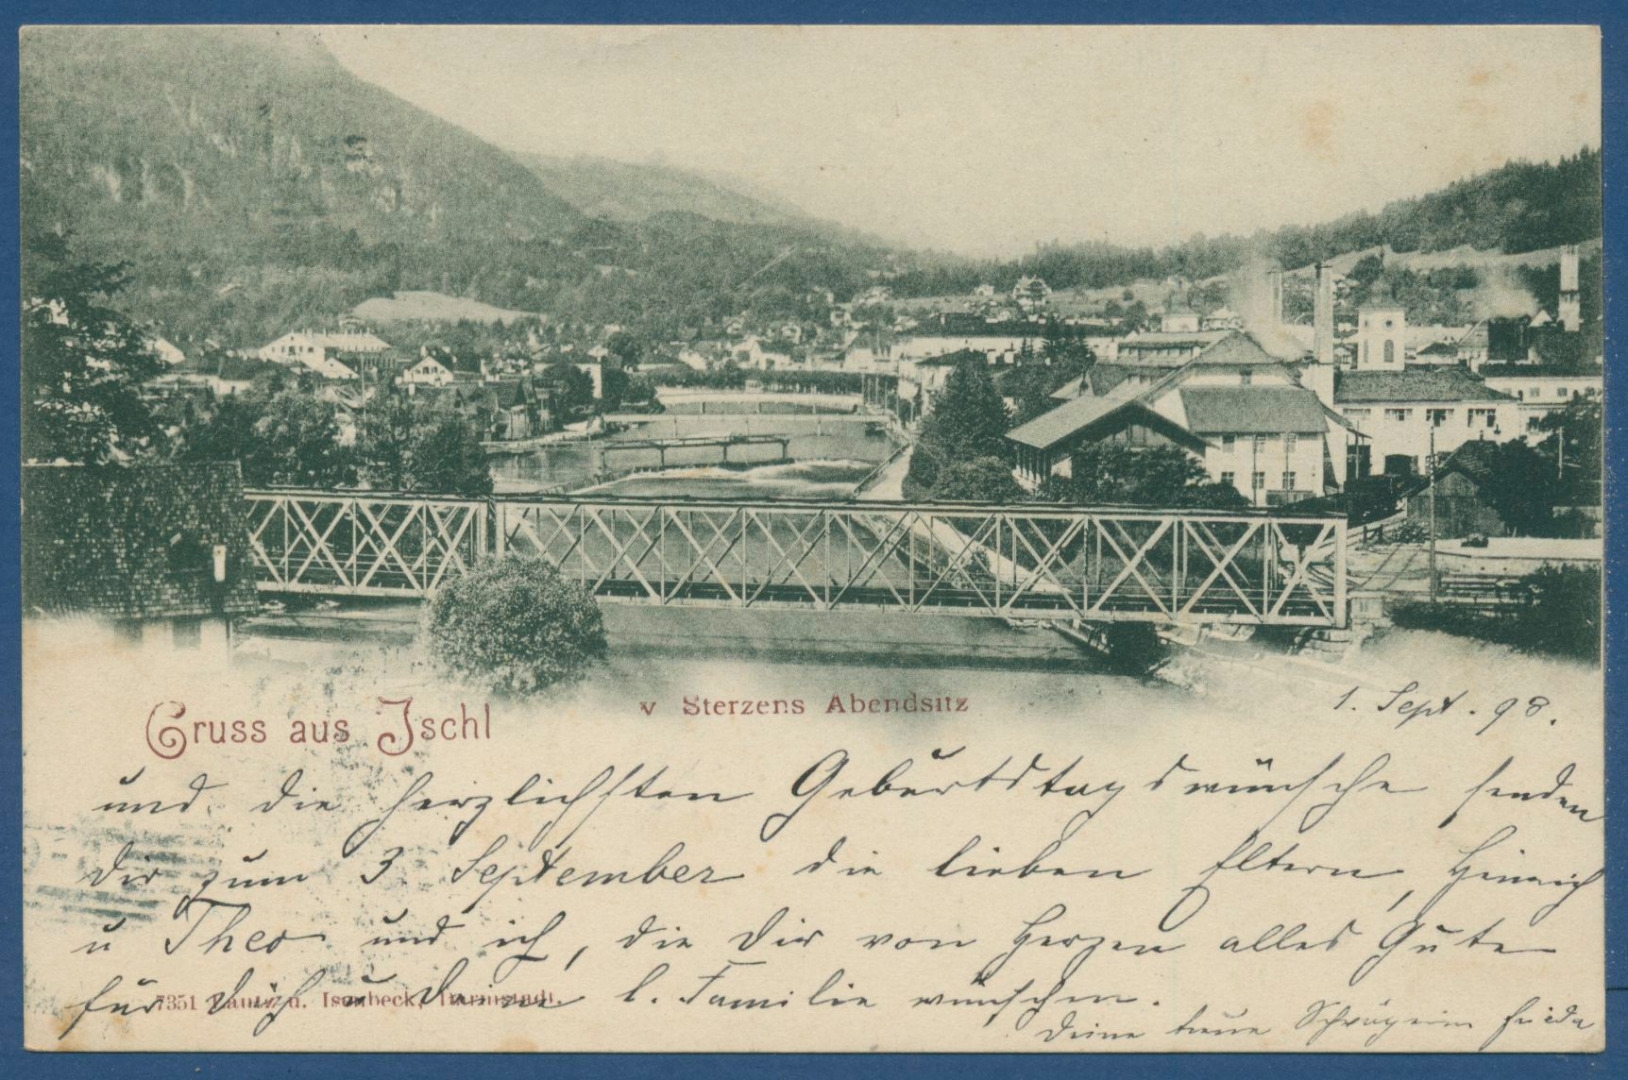 Gruss aus Ischl
v Sterzens Abendsitz
1. Sept. 98.
und die herzlichsten Geburtstagswünsche senden
Dir zum 3. September die lieben Eltern, Hinrich
u Theo und ich, die Dir von Herzen alles Gute
für Dich u Deine l. Familie wünschen.
Deine treue Schwägerin Frieda
7351 u. Isenbeck, Darmstadt.